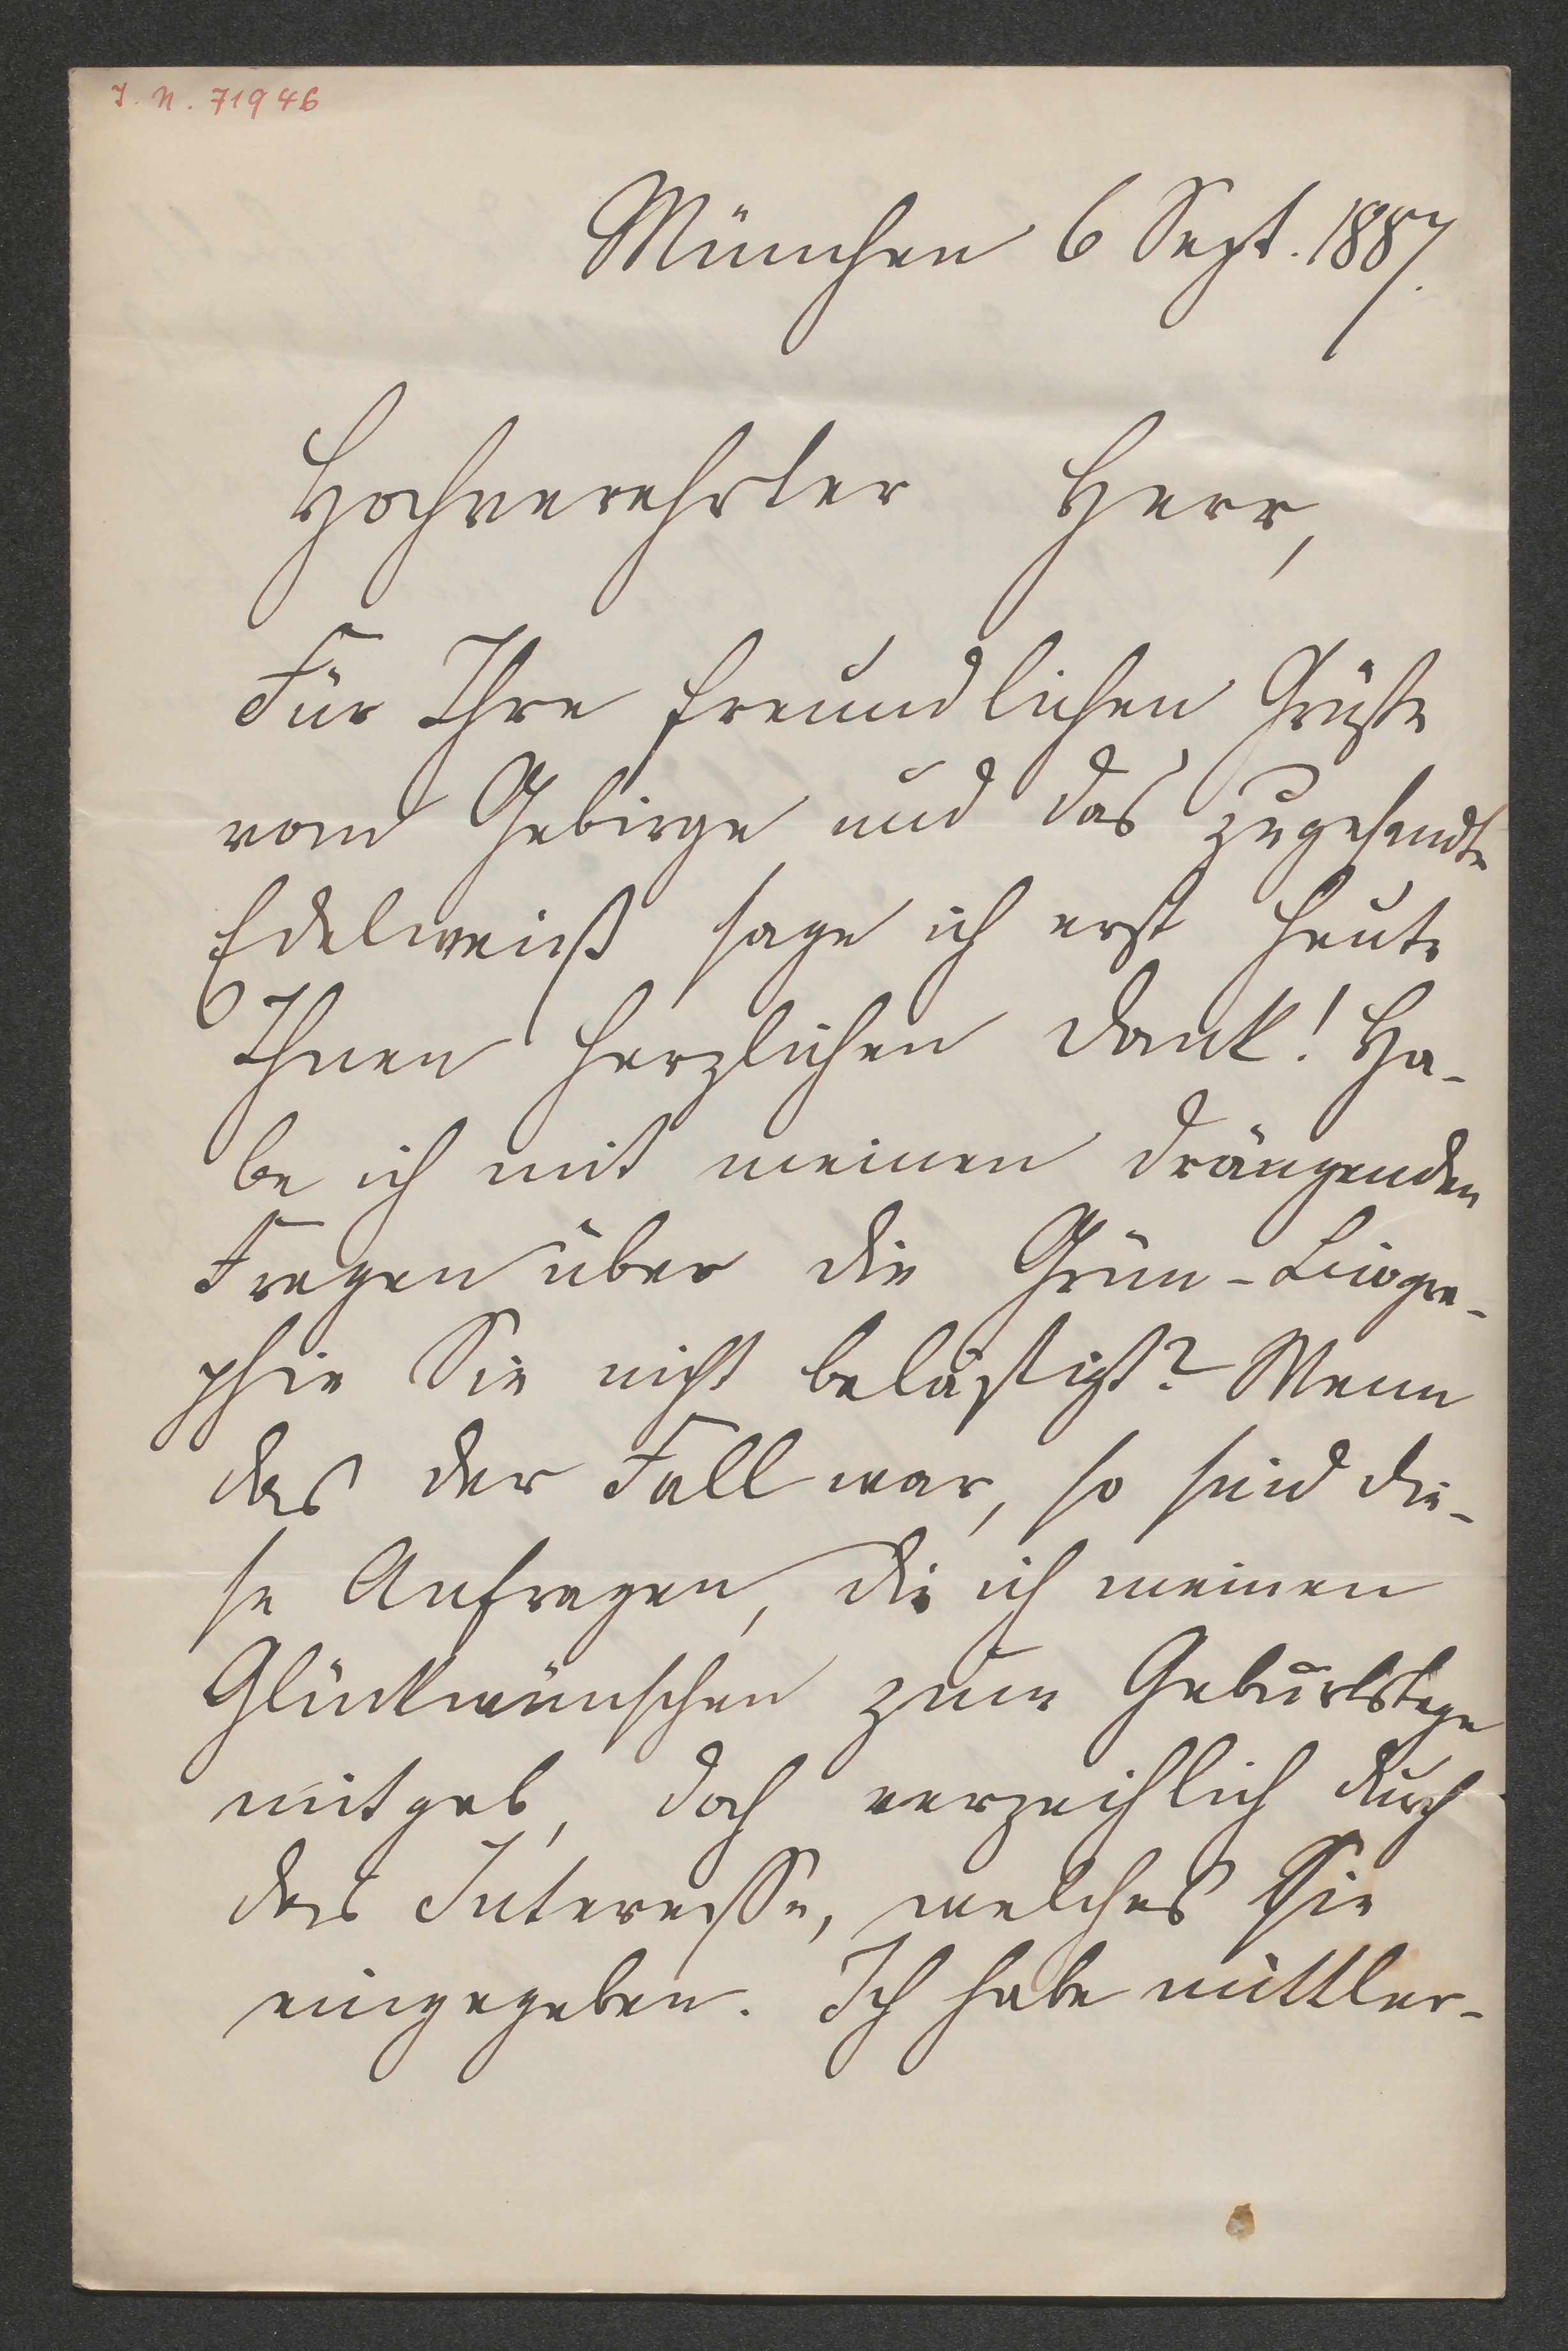 I. N. 71946
München 6 Sept. 1887.
Hochverehrter Herr,
Für Ihre freundlichen Grüße
vom Gebirge und das zugesandte
Edelweiß sage ich erst heute
Ihnen herzlichen Dank! Ha-
be ich mit meinen drängenden
Fragen über die Grün-Biogra-
phie Sie nicht belästigt? Wenn
das der Fall war, so sind die-
se Anfragen, die ich meinen
Glückwünschen zum Geburtstage
mitgab, doch verzeihlich durch
das Interesse, welches Sie
eingegeben. Ich habe mittler-